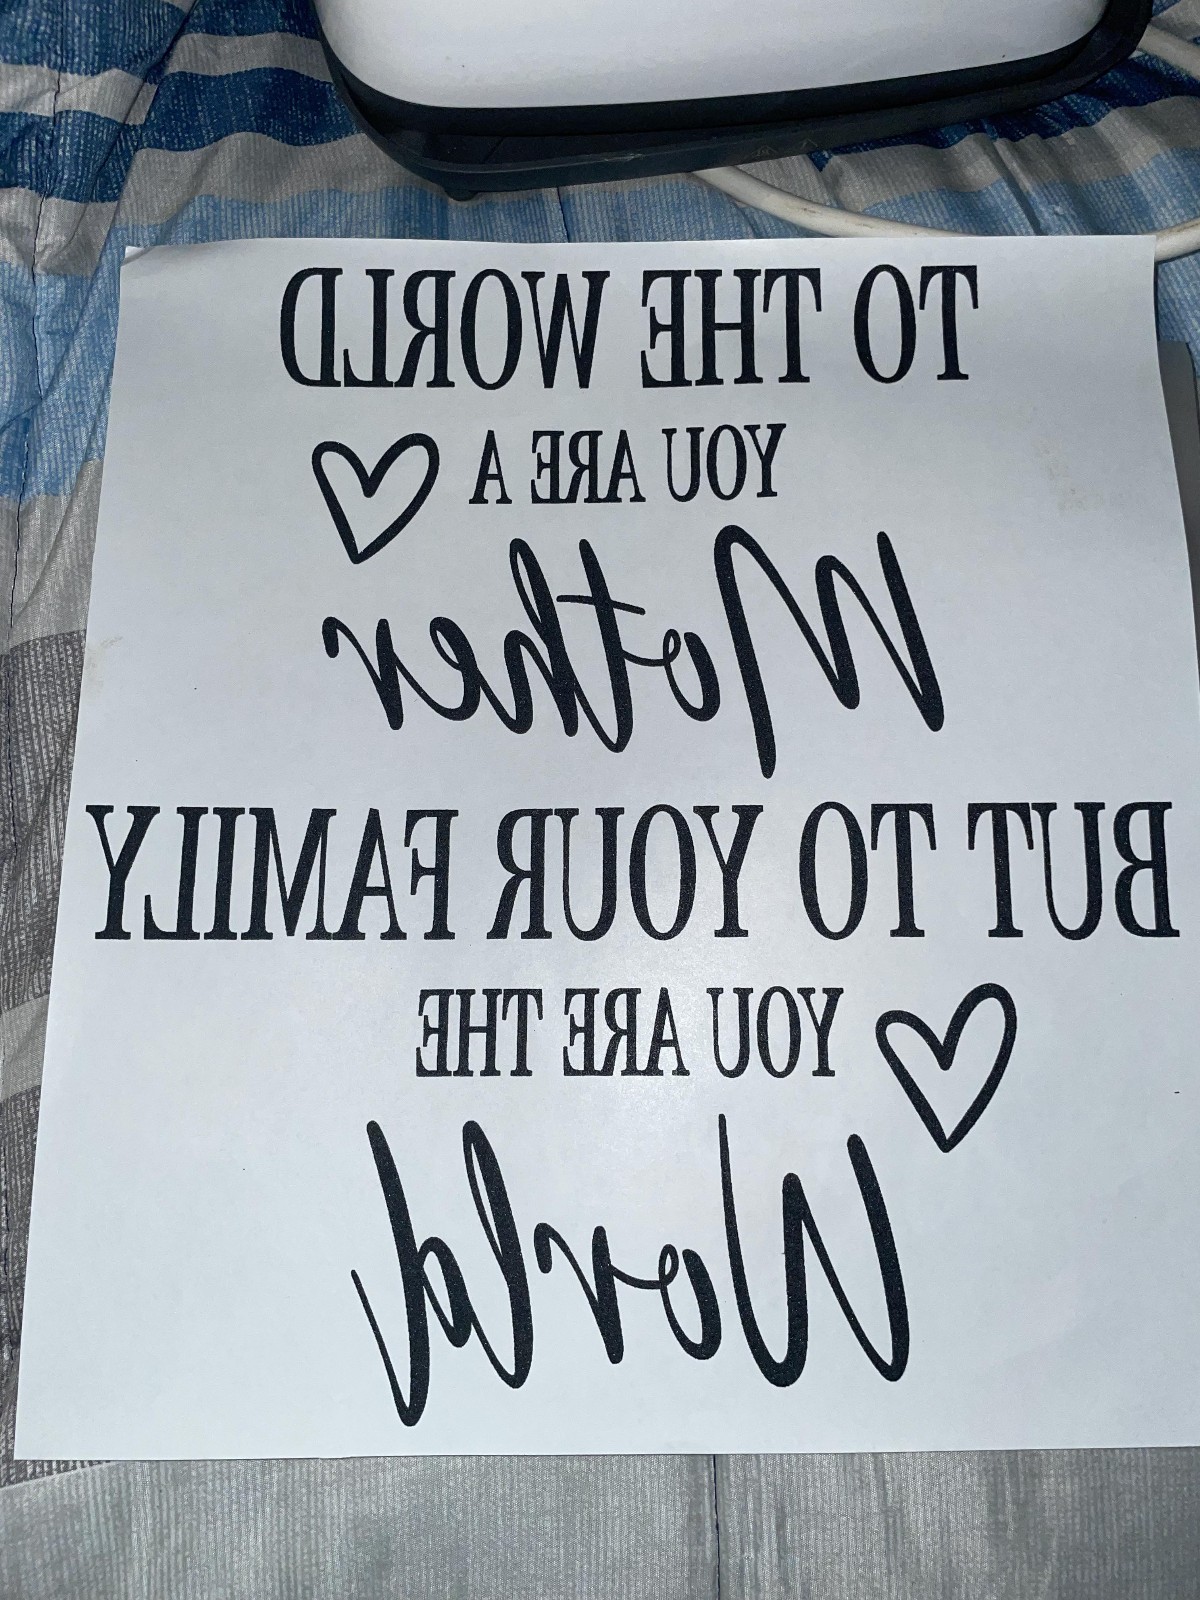 TO THE WORLD
YOU ARE A
Mother
BUT TO YOUR FAMILY
YOU ARE THE
World